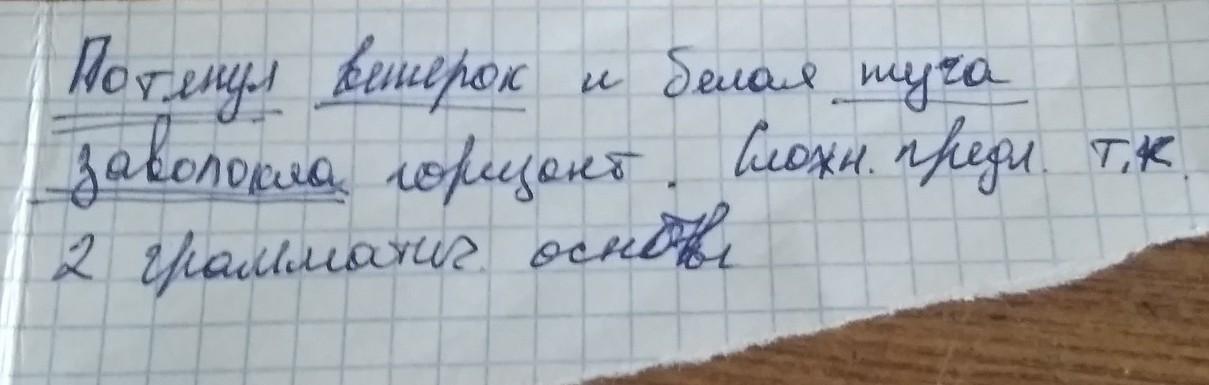 Потянул ветерок и белая туча
заволокла горизонт. Сложн. предл. т.к.
2 грамматич. основы